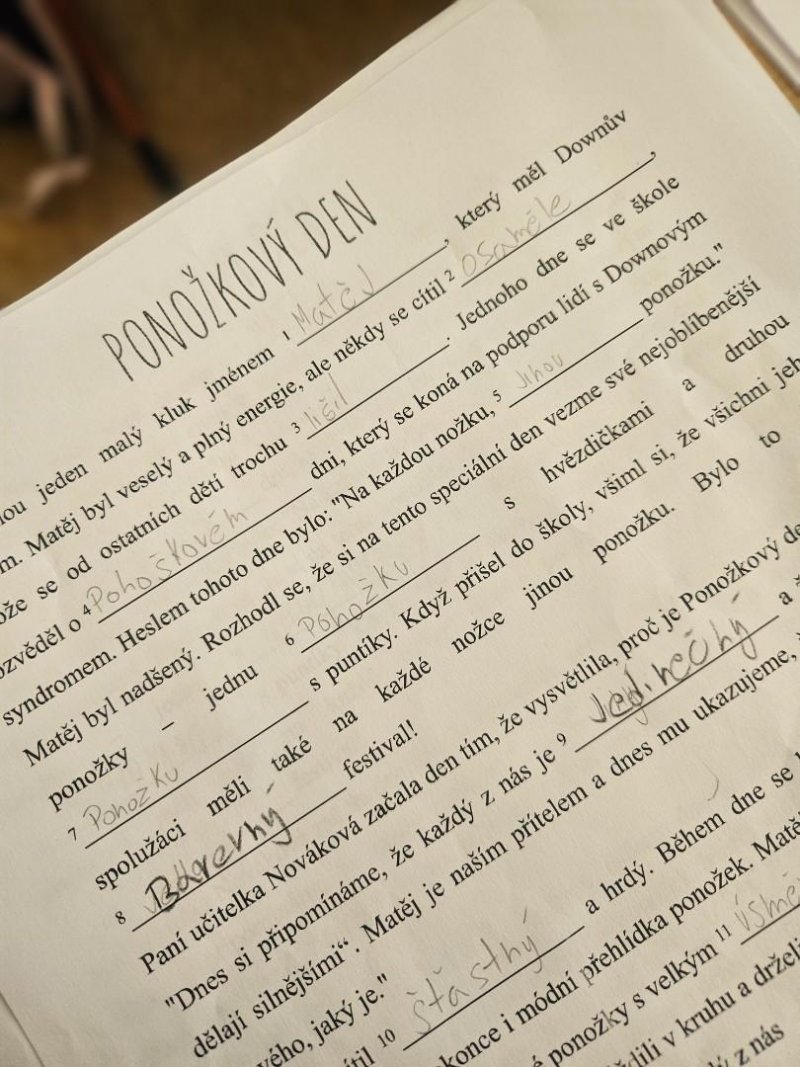 PONOŽKOVÝ DEN
nou jeden malý kluk jménem 1 Matěj, který měl Downův
m. Matěj byl veselý a plný energie, ale někdy se cítil 2 osaměle,
ože se od ostatních dětí trochu 3 lišil. Jednoho dne se ve škole
ozvěděl o 4 Ponoškovém dni, který se koná na podporu lidí s Downovým
syndromem. Heslem tohoto dne bylo: "Na každou nožku, 5 jinou ponožku."
Matěj byl nadšený. Rozhodl se, že si na tento speciální den vezme své nejoblíbenější
ponožky – jednu 6 Ponožku s hvězdičkami a druhou
7 Ponožku s puntíky. Když přišel do školy, všiml si, že všichni jeh
spolužáci měli také na každé nožce jinou ponožku. Bylo to
8 Barevný festival!
Paní učitelka Nováková začala den tím, že vysvětlila, proč je Ponožkový de
"Dnes si připomínáme, že každý z nás je 9 Jedinečný a
dělají silnějšími“. Matěj je naším přítelem a dnes mu ukazujeme,
vého, jaký je."
cítil 10 šťastný a hrdý. Během dne se
okonce i módní přehlídka ponožek. Matě
é ponožky s velkým 11 úsmě
dili v kruhu a drželi
z nás